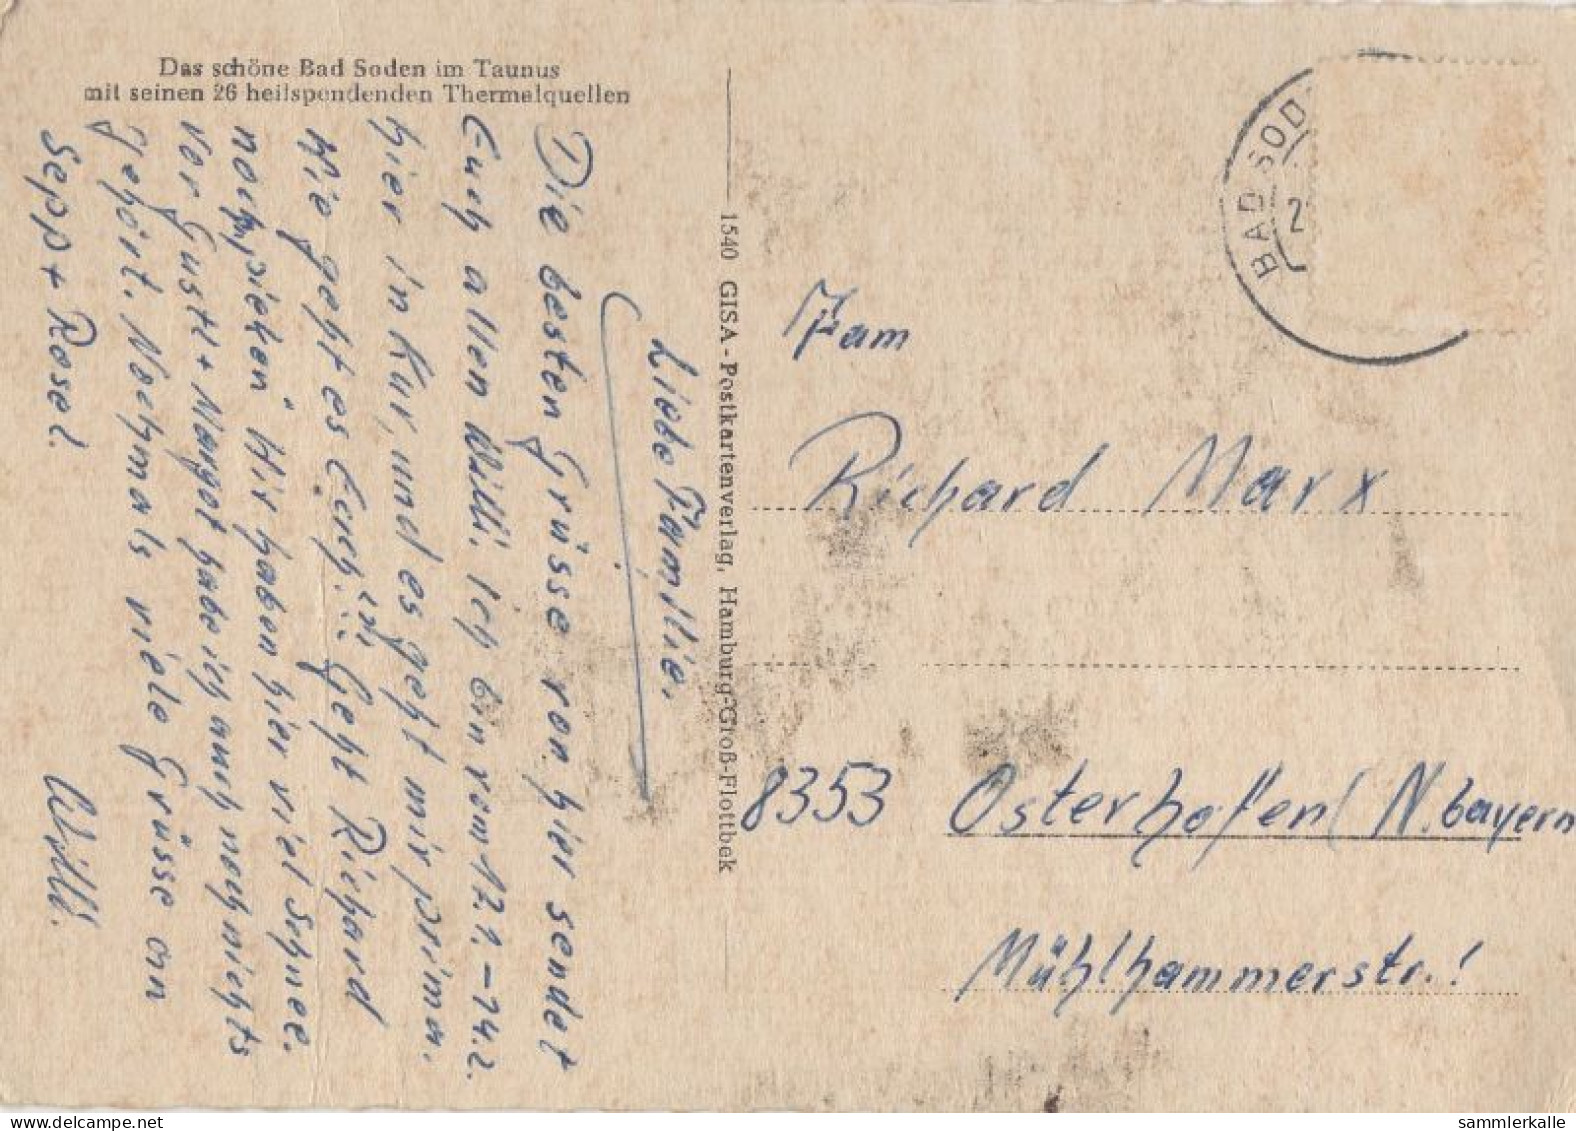 Das schöne Bad Soden im Taunus
mit seinen 26 heilspendenden Thermalquellen
Liebe Familie.
Die besten Grüsse von hier sendet
Euch allen Willi. Ich bin vom 17.1.-14.2.
hier in Kur, und es geht mir prima.
Wie geht es Euch. Geht Richard
noch
Wir haben hier viel Schnee.
Vor Gustl + Margot habe ich auch noch nichts
gehört. Nochmals viele Grüsse an
Sepp + Rosel.
Willi.
1540 GISA-Postkartenverlag, Hamburg-Groß-Flottbek
BAD SOD
2
Fam
Richard Marx
8353 Osterhofen/N.bayern
Mühlhammerstr.!
sammlerkalle